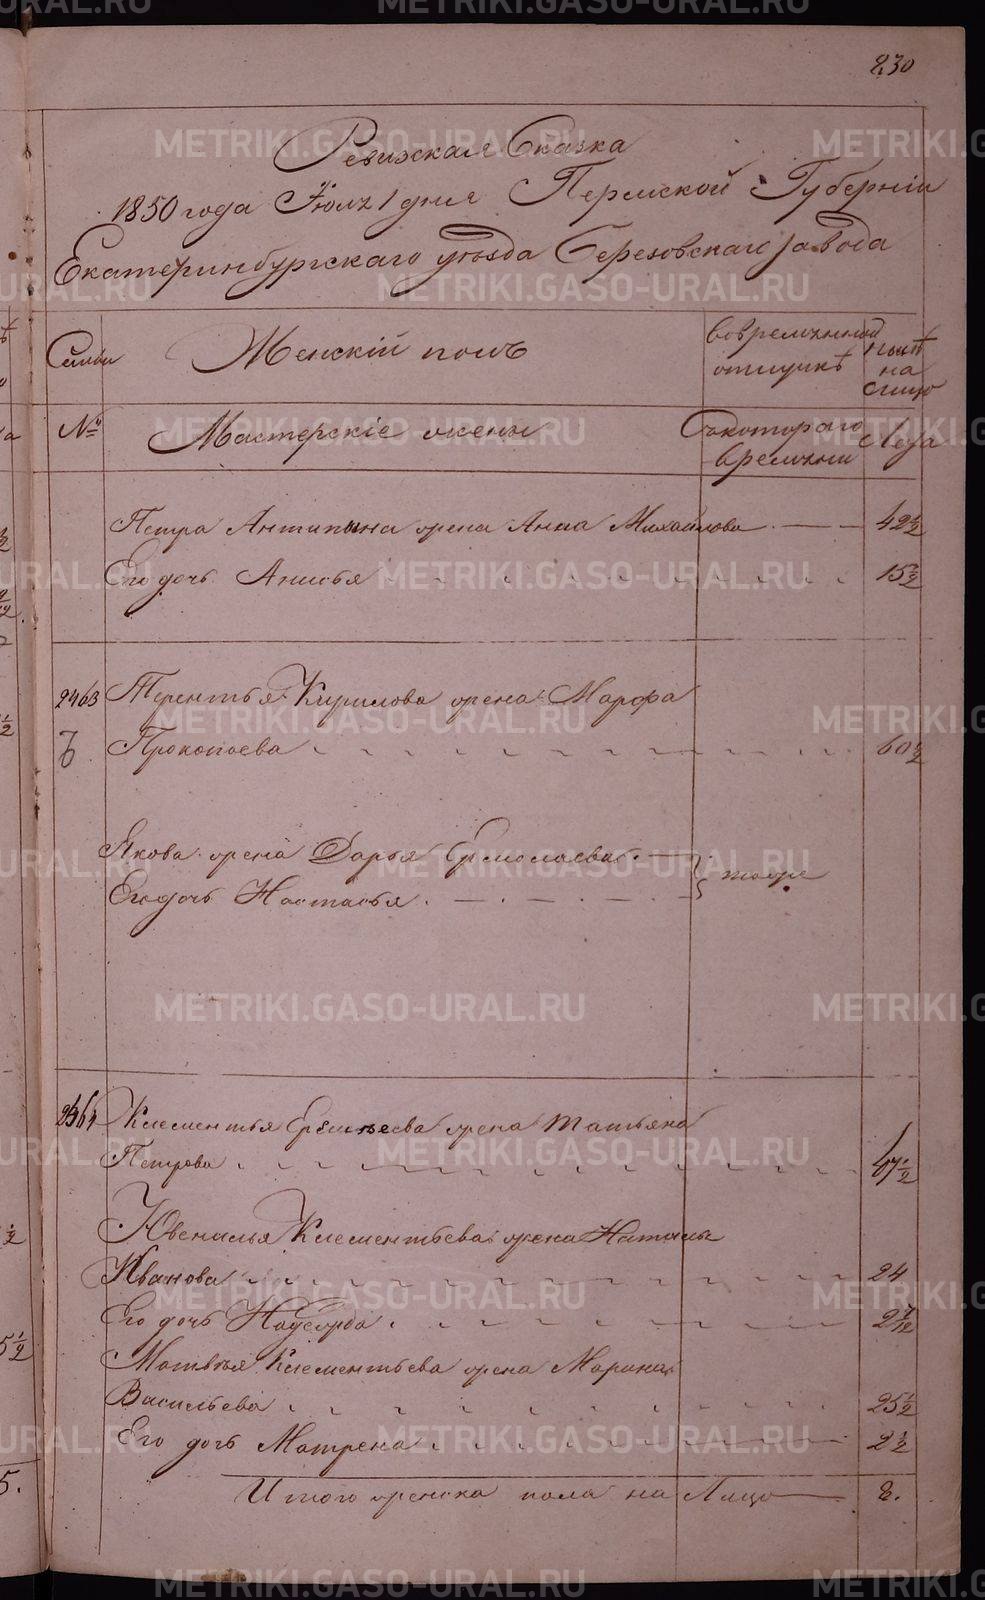 830
Ревижская Сказка
1850 года Іюля 1 дня Пермской Губерніи
Екатеринбургскаго уѣзда Березовскаго завода
Семьи Женскій полъ вовременной отлучкѣ Ныне на лицо
№ Мастерскіе жены Съкотораго времѣни Лета
Петра Антипына жена Анна Михайлова 42 1/2
Его дочь Анисья 15 1/2
2463 Терентья Кирилова жена Марфа
Прокопьева 60 1/2
Якова жена Дарья Ермолаева
Его дочь Настасья тоже
2464 Клементья Еремѣева жена Татьяна
Петрова 47 1/2
Ювеналья Клементьева жена Наталья
Иванова 24
Его дочь Надежда 2 7/12
Матвѣя Клементьева жена Марина
Васильева 25 1/2
Его дочь Матрена 2 1/2
Итого женска пола на Лицо 8.
METRIKI.GASO-URAL.RU